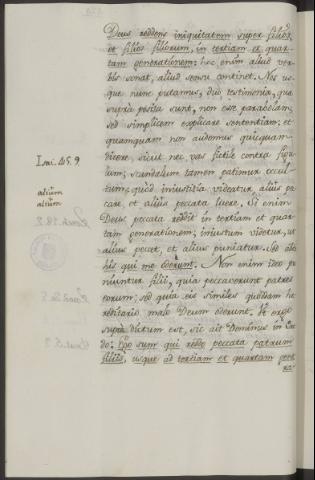 Deus reddens iniquitatem super filios,
et filios filiorum, in tertiam et quar-
tam generationem: hec enim aliud ver-
bis sonat, aliud sensu continet. Nos us-
que nunc putamus, duo testimonia, que
supra posita sunt, non esse parabolam;
sed simplicem explicare sententiam: et
quamquam non audemus quicquam
dicere, sicut nec vas fictile contra figu-
Isai. 45. 9
lum; scandalum tamen patimur occul-
tum; quod iniustitia videatur, alium pec-
alium
care et alium peccata luere. Si enim
alium
Deus peccata reddit in tertiam et quar-
tam generationem; iniustum videtur, ut
alius peccet, et alius puniatur. Sed
his qui me oderunt. Non enim ideo pu-
niuntur filii, quia peccaverunt patres
eorum; sed quia eis similes quodam he-
reditario malo Deum oderunt. Et ergo
supra dictum est, sic ait Dominus in Exo-
do: Ego sum qui reddo peccata patrum
filiis, usque ad tertiam et quartam gene
ra